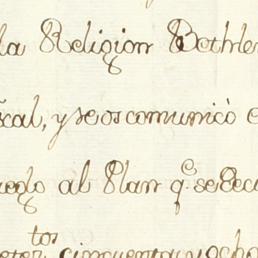 la Religion Bethle
scal, y se os comunicò e
uedo al Plan q.e se decu
tos
cincuenta y ocho